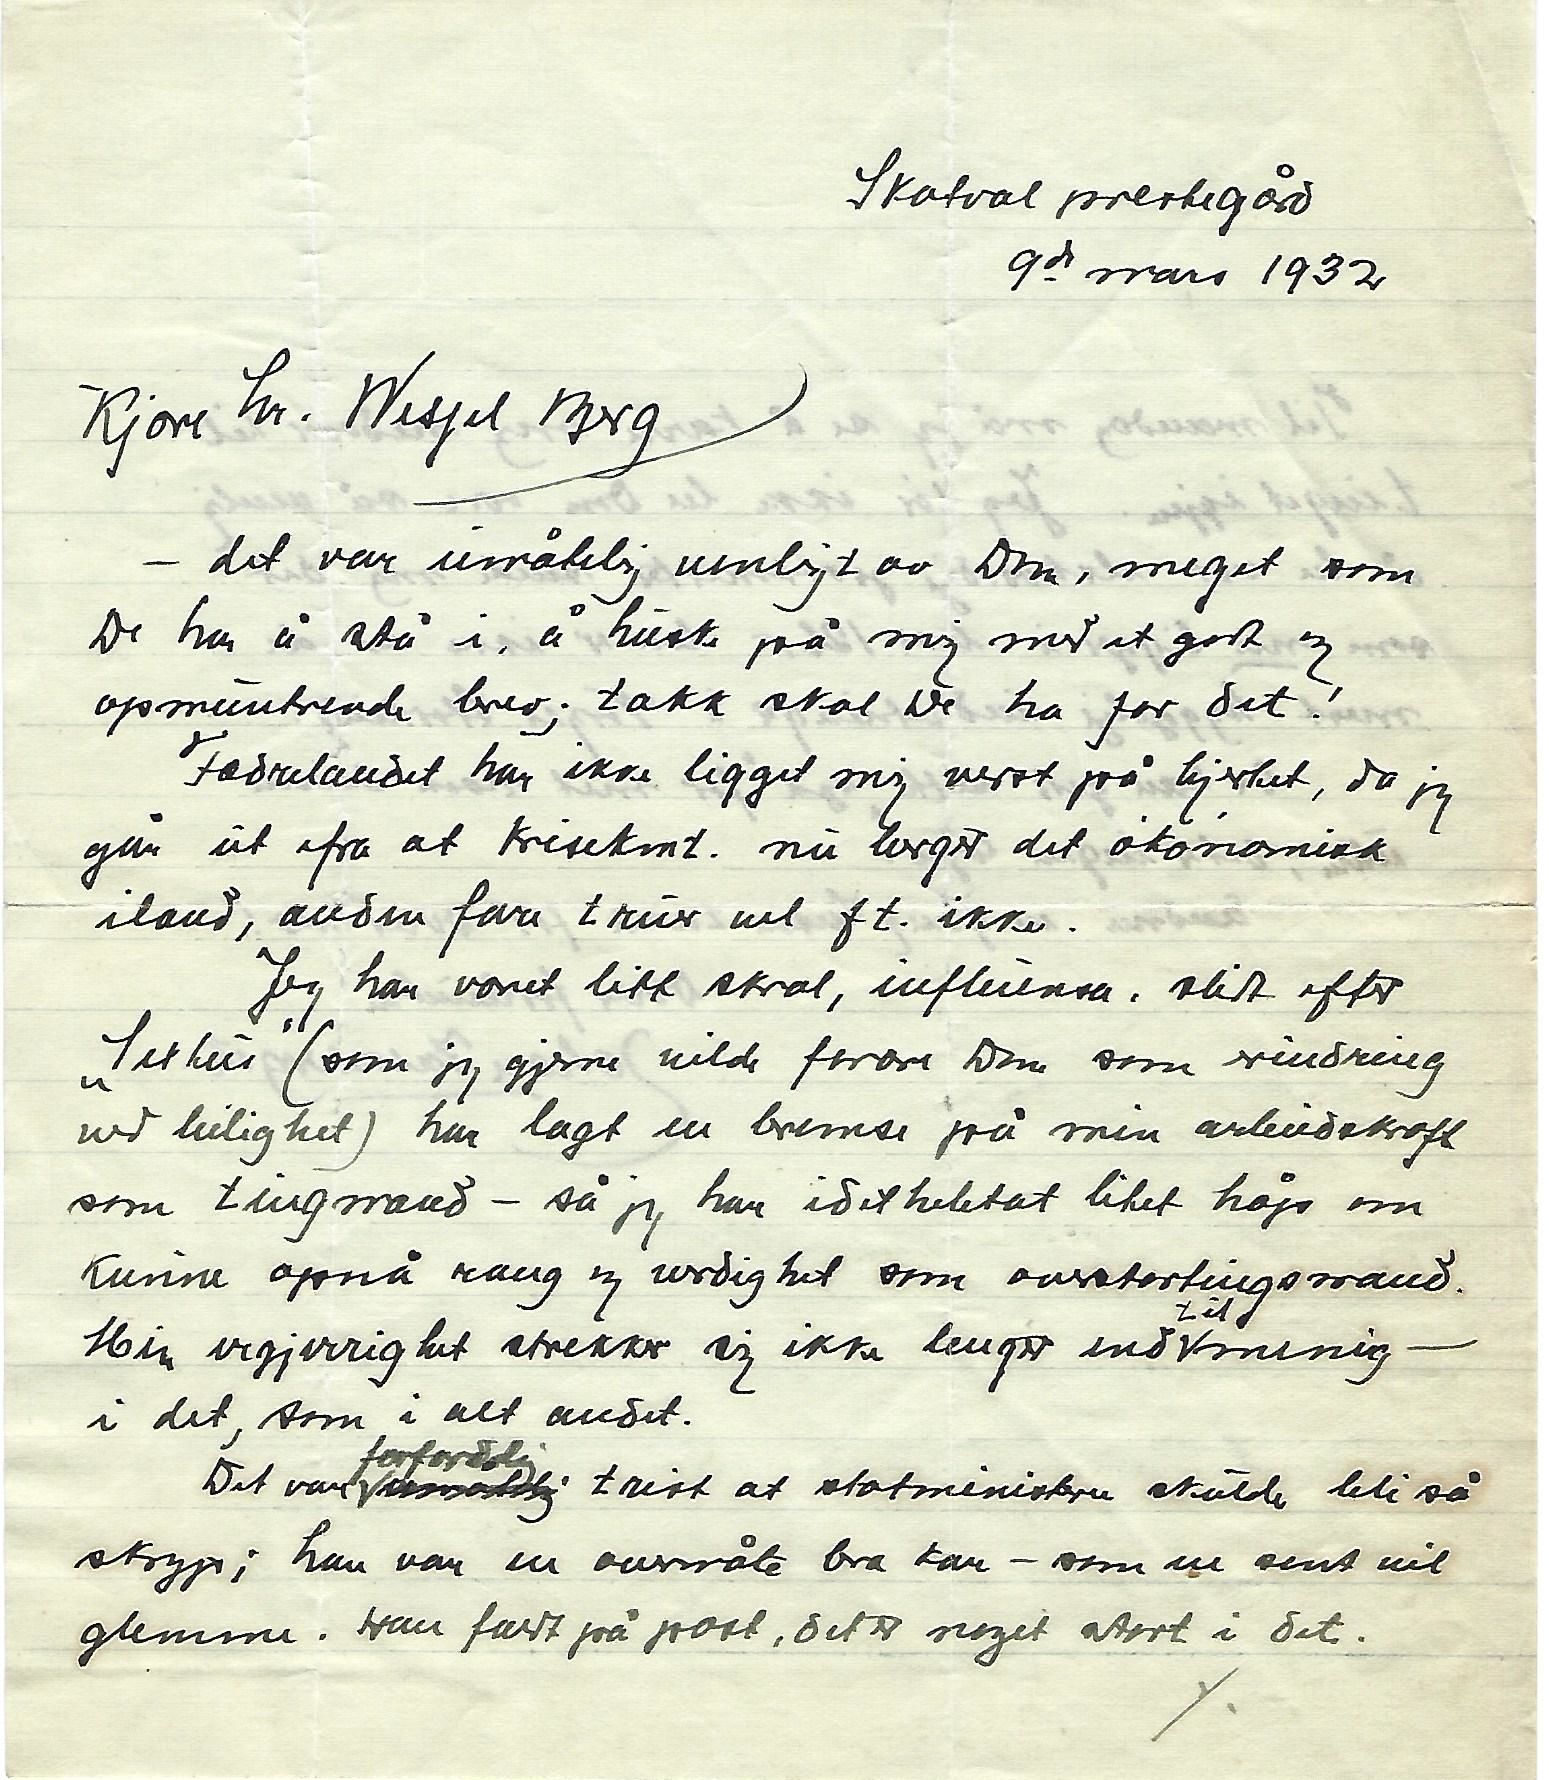 Skatval prestegård
9de mars 1932
Kjære hr. Wessel Berg
– det var umåtelig venligt av Dem, meget som
De har å stå i, å huske på mig med et godt og
opmuntrende brev; takk skal De ha for det!
Fædrelandet har ikke ligget mig verst på hjertet, da jeg
går ut ifra at Krisekmt. nu berger det økonomisk
iland, anden fare truer vel ft. ikke.
Jeg har været litt skral, influensa, slidt efter
"Sethus" (som jeg gjerne vilde forære Dem som erindring
ved leilighet) har lagt en bremse på min arbeidskraft
som tingmand – så jeg har idetheletat litet håp om
kunne opnå rang og verdighet som overstortingsmand.
Min ærgjerrighet strekker sig ikke lenger end til menig –
i det, som i alt andet.
Det var forferdelig trist at statministeren skulde bli så
skrøp; han var en overmåte bra kar – som en sent vil
glemme. Han faldt på post, det er noget stort i det.